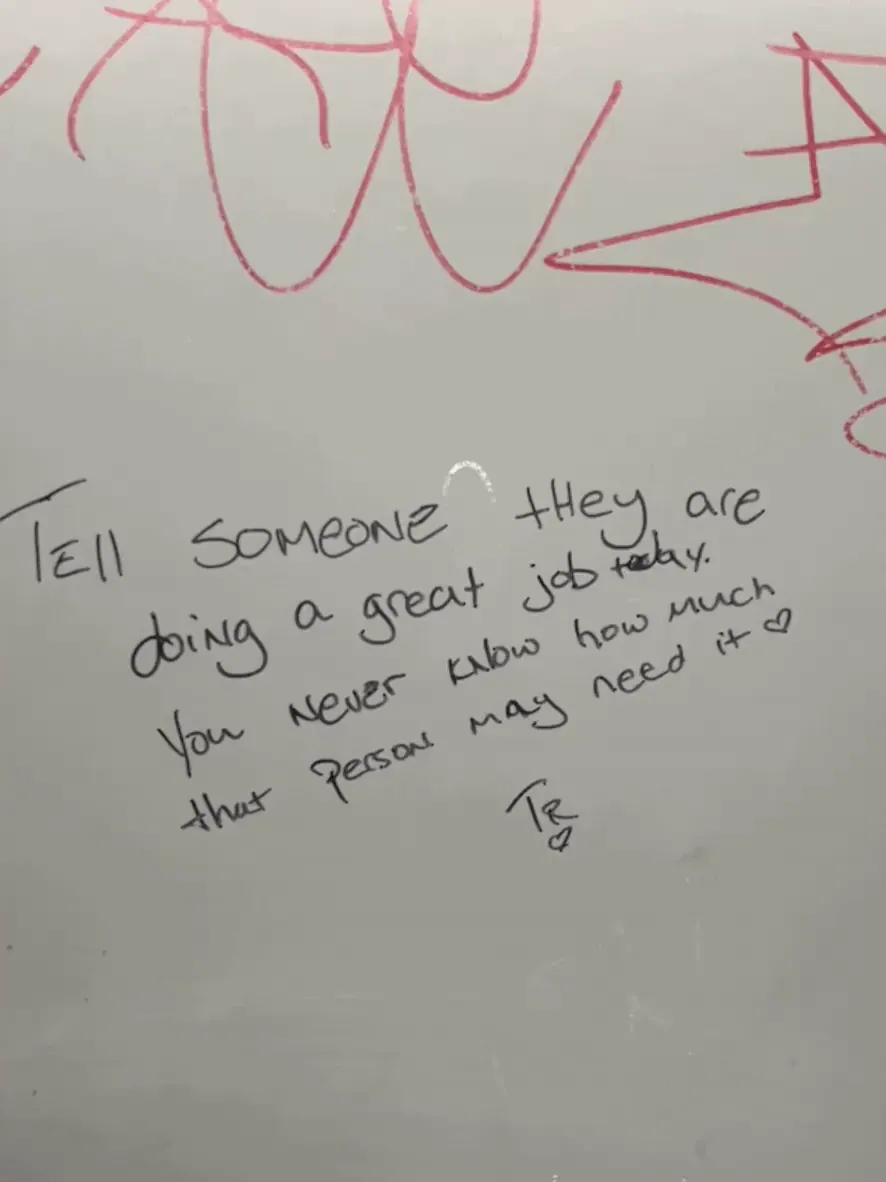 TEll SOMEONE tHey are
doing a great job today.
You Never KNow how much
that person may need it ♡
TR
♡